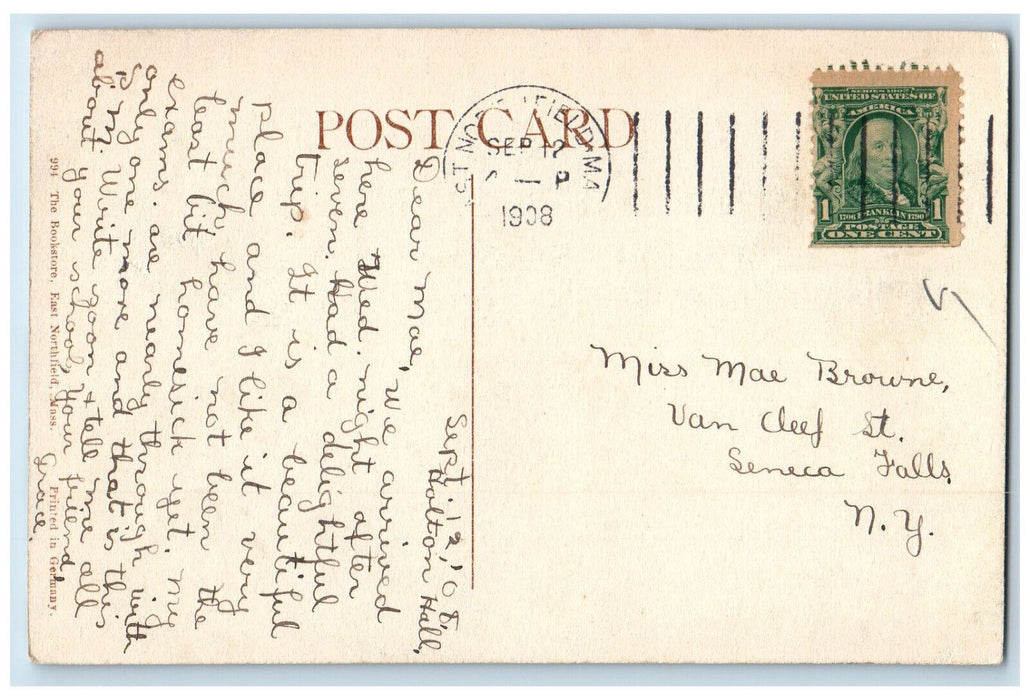 POST CARD
SEP 12
1908
SERIES 1902
UNITED STATES OF
AMERICA
1706 FRANKLIN 1790
1 1
POSTAGE
ONE CENT
Sept. 12, '08.
Holton Hall,
Dear Mae, we arrived
here Wed. night after
seven. Had a delightful
trip. It is a beautiful
place and I like it very
much, have not been the
least bit homesick yet. My
exams. are nearly through with
only one more and that is this
P.M. Write soon & tell me all
about your school, Your friend
Grace.
994 The Bookstore, East Northfield, Mass. Printed in Germany.
Miss Mae Browne,
Van Cleef St.
Seneca Falls
N.Y.